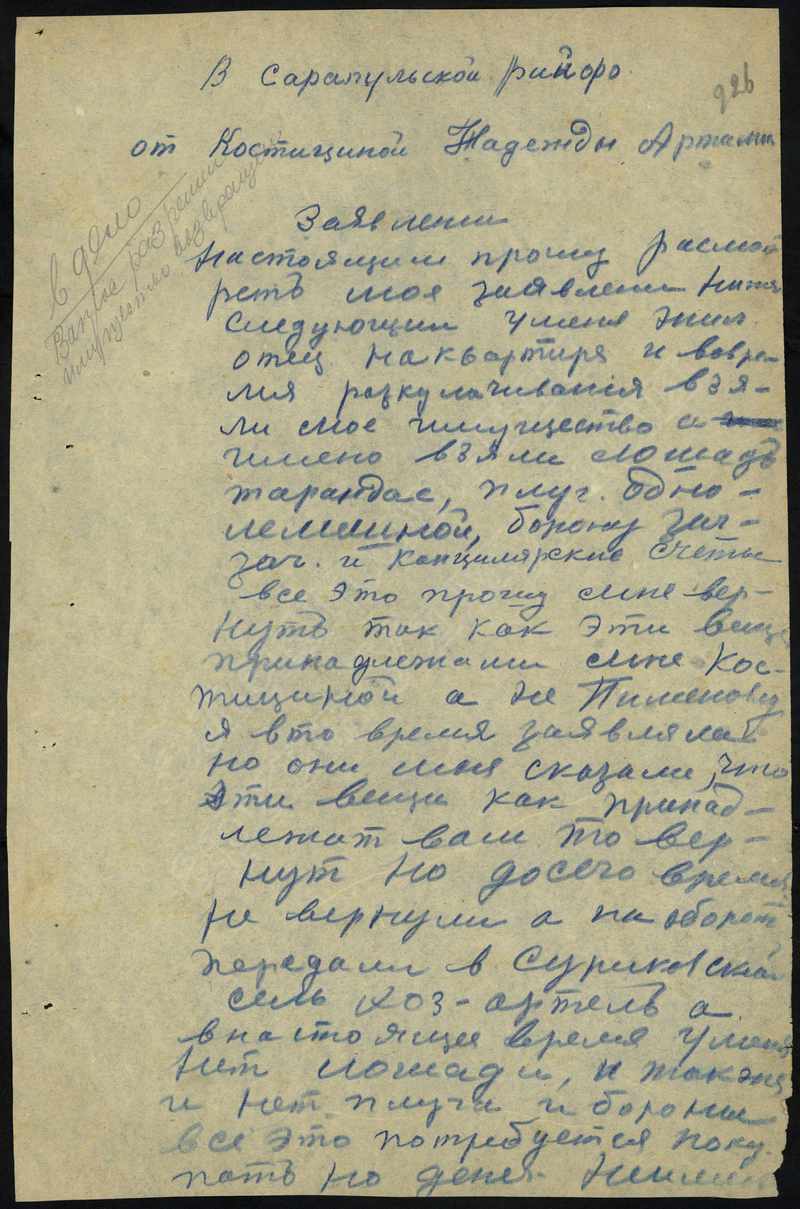 В Сарапульской райфо
926
от Костициной Надежды Артами
Заявлени
в дело
Вопрос разрешен
имущество возвращ
настоящим прошу расмот
реть мое заявлени ниже
следующим у меня жил
отец на квартире и вовре-
мя розкулачивания взя-
ли мое имущество а
имено взяли лошадь
тарандас, плуг. одно-
лемешной, борону зиг-
заг. и канцилярские счеты
все это прошу мне вер-
нуть так как эти вещи
принадлежали мне Кос-
тициной а не Пименову
я вто время заявляла
но они мня сказали, что
эти вещи как принад-
лежат вам то вер-
нут но досего время
не вернули а на оборот
передали в Суриковскои
сель хоз-артель а
внастоящее время у меня
нет лошади, и также
и нет плуга и бороны
все это потребуется поку
пать но денег